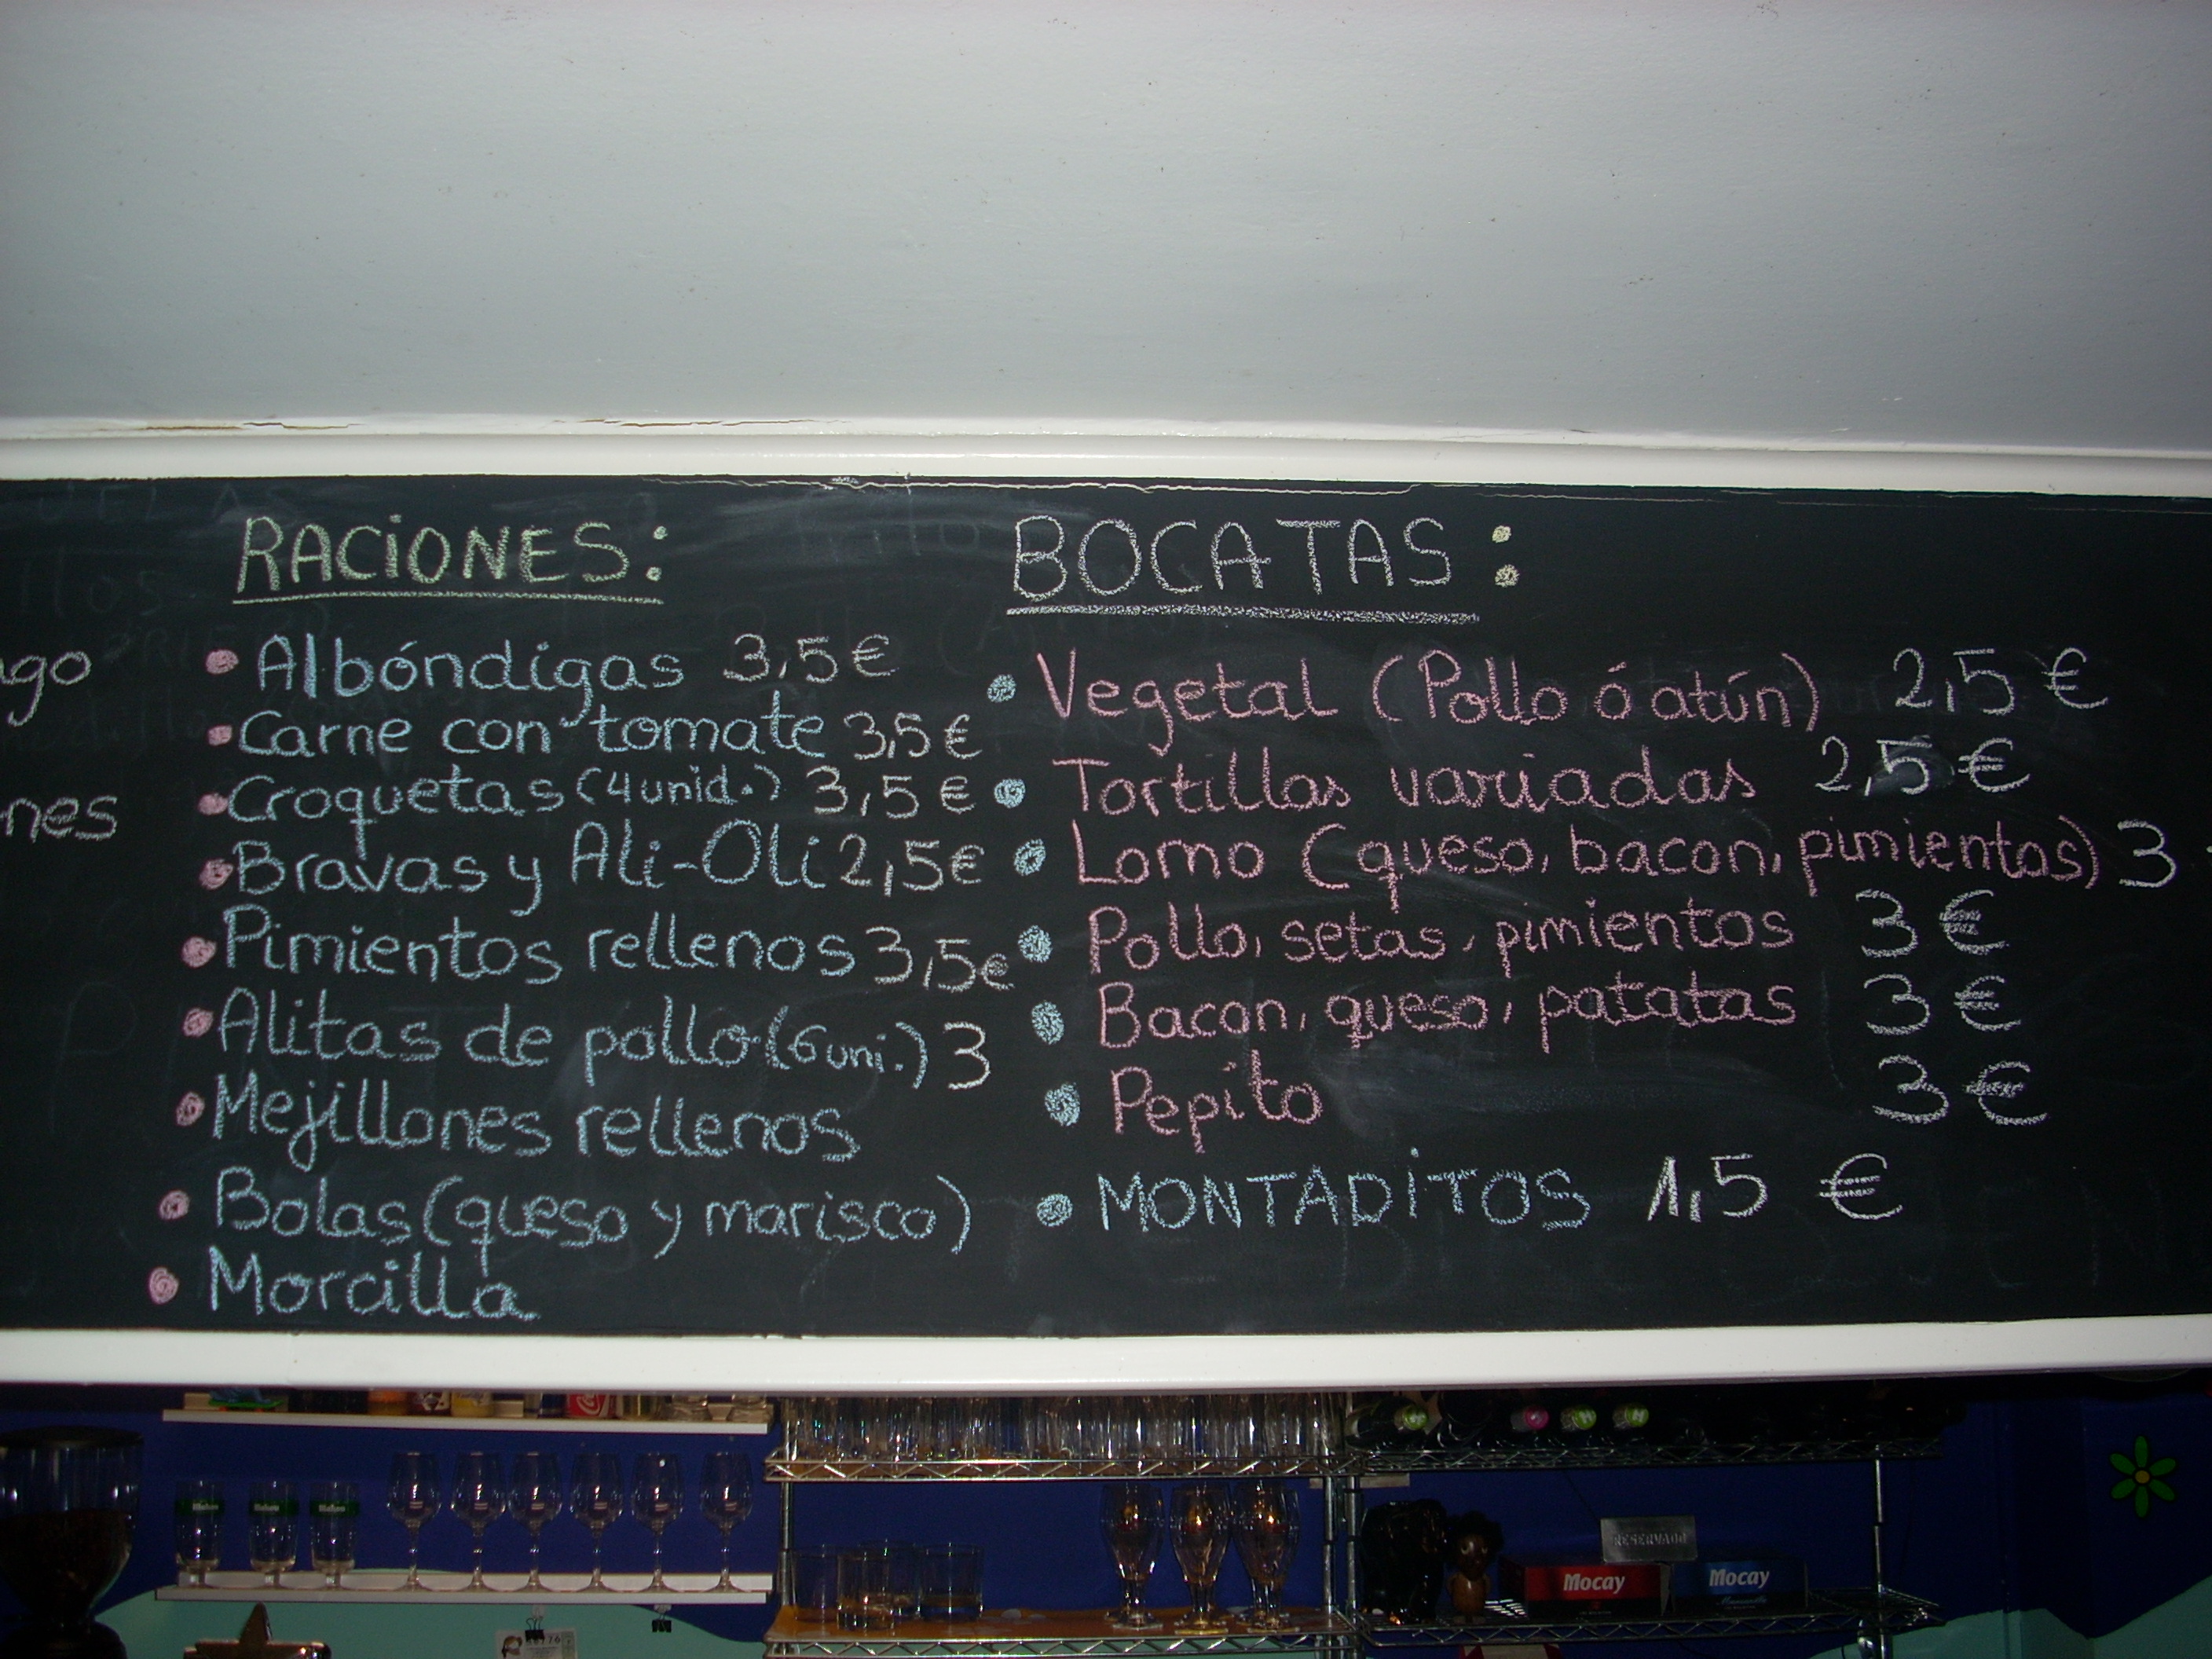 RACIONES:
Albóndigas 3,5€
Carne con tomate 3,5€
Croquetas (4 unid.) 3,5€
Bravas y Ali-Oli 2,5€
Pimientos rellenos 3,5€
Alitas de pollo (6 uni.) 3
Mejillones rellenos
Bolas (queso y marisco)
Morcilla
BOCATAS:
Vegetal (Pollo ó atún) 2,5€
Tortillas variadas 2,5€
Lomo (queso, bacon, pimientos) 3
Pollo, setas, pimientos 3€
Bacon, queso, patatas 3€
Pepito 3€
MONTADITOS 1,5 €
RESERVADO
Mocay
Mocay